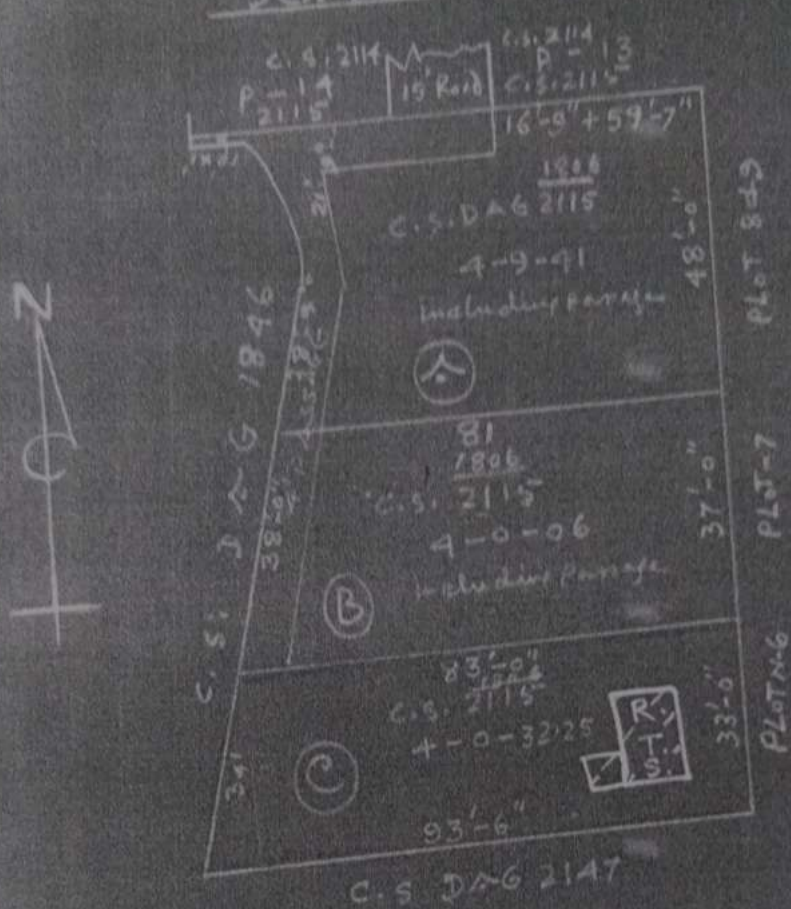 C.S. 2114
P-14
2115
15' Road
C.S. 2114
P-13
C.S. 2115
16'-9" + 59'-7"
1806
2115
C.S. DAG
4-9-41
including passage
A
48'-0"
PLOT 8&9
N
C.S. DAG 1846
81
1806
C.S. 2115
4-0-06
including passage
B
38'-0"
37'-0"
PLOT-7
83'-0"
C.S. 2115
4-0-32.25
C
34'
R.
T.
S.
33'-0"
PLOT N-6
93'-6"
C.S DAG 2147